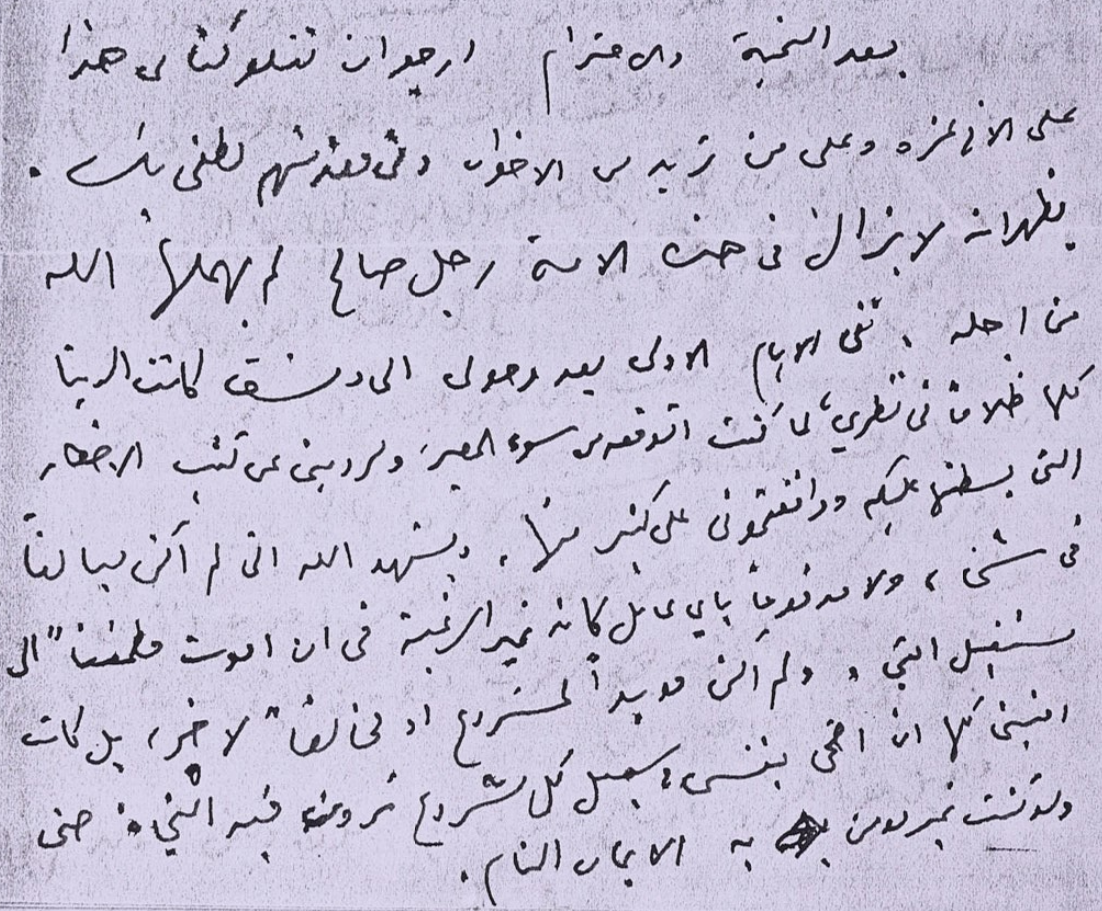 بعد التحية والاحترام ارجو ان تتلو كتابي هذا
على الاخ غزه وعلى من تريد من الاخوان وفي مقدمتهم لطفي بك .
يظهر انه لا يزال في هذه الامة رجل صالح لم يهملها الله
من اجله . ففي الايام الاولى بعد وصولي الى دمشق كانت الدنيا
كلها ظلاما في نظري، لما كنت اتوقعه من سوء المصير ولو
التي بسطتها عليكم ووافقتموني على كثير منها . ويشهد الله اني لم اكن مبالغاً
في شيء ، ولا مدفوعاً باي عامل كان غير الرغبة في ان اموت مطمئناً الى
مستقبل امتي . ولم اكن مويداً لمشروع او مخالفاً لاخر، بل كانت
امنيتي كلها ان اضحي بنفسي في سبيل كل مشروع ترون فيه النجاة حتى
ولو كنت غير مومن به الايمان التام .